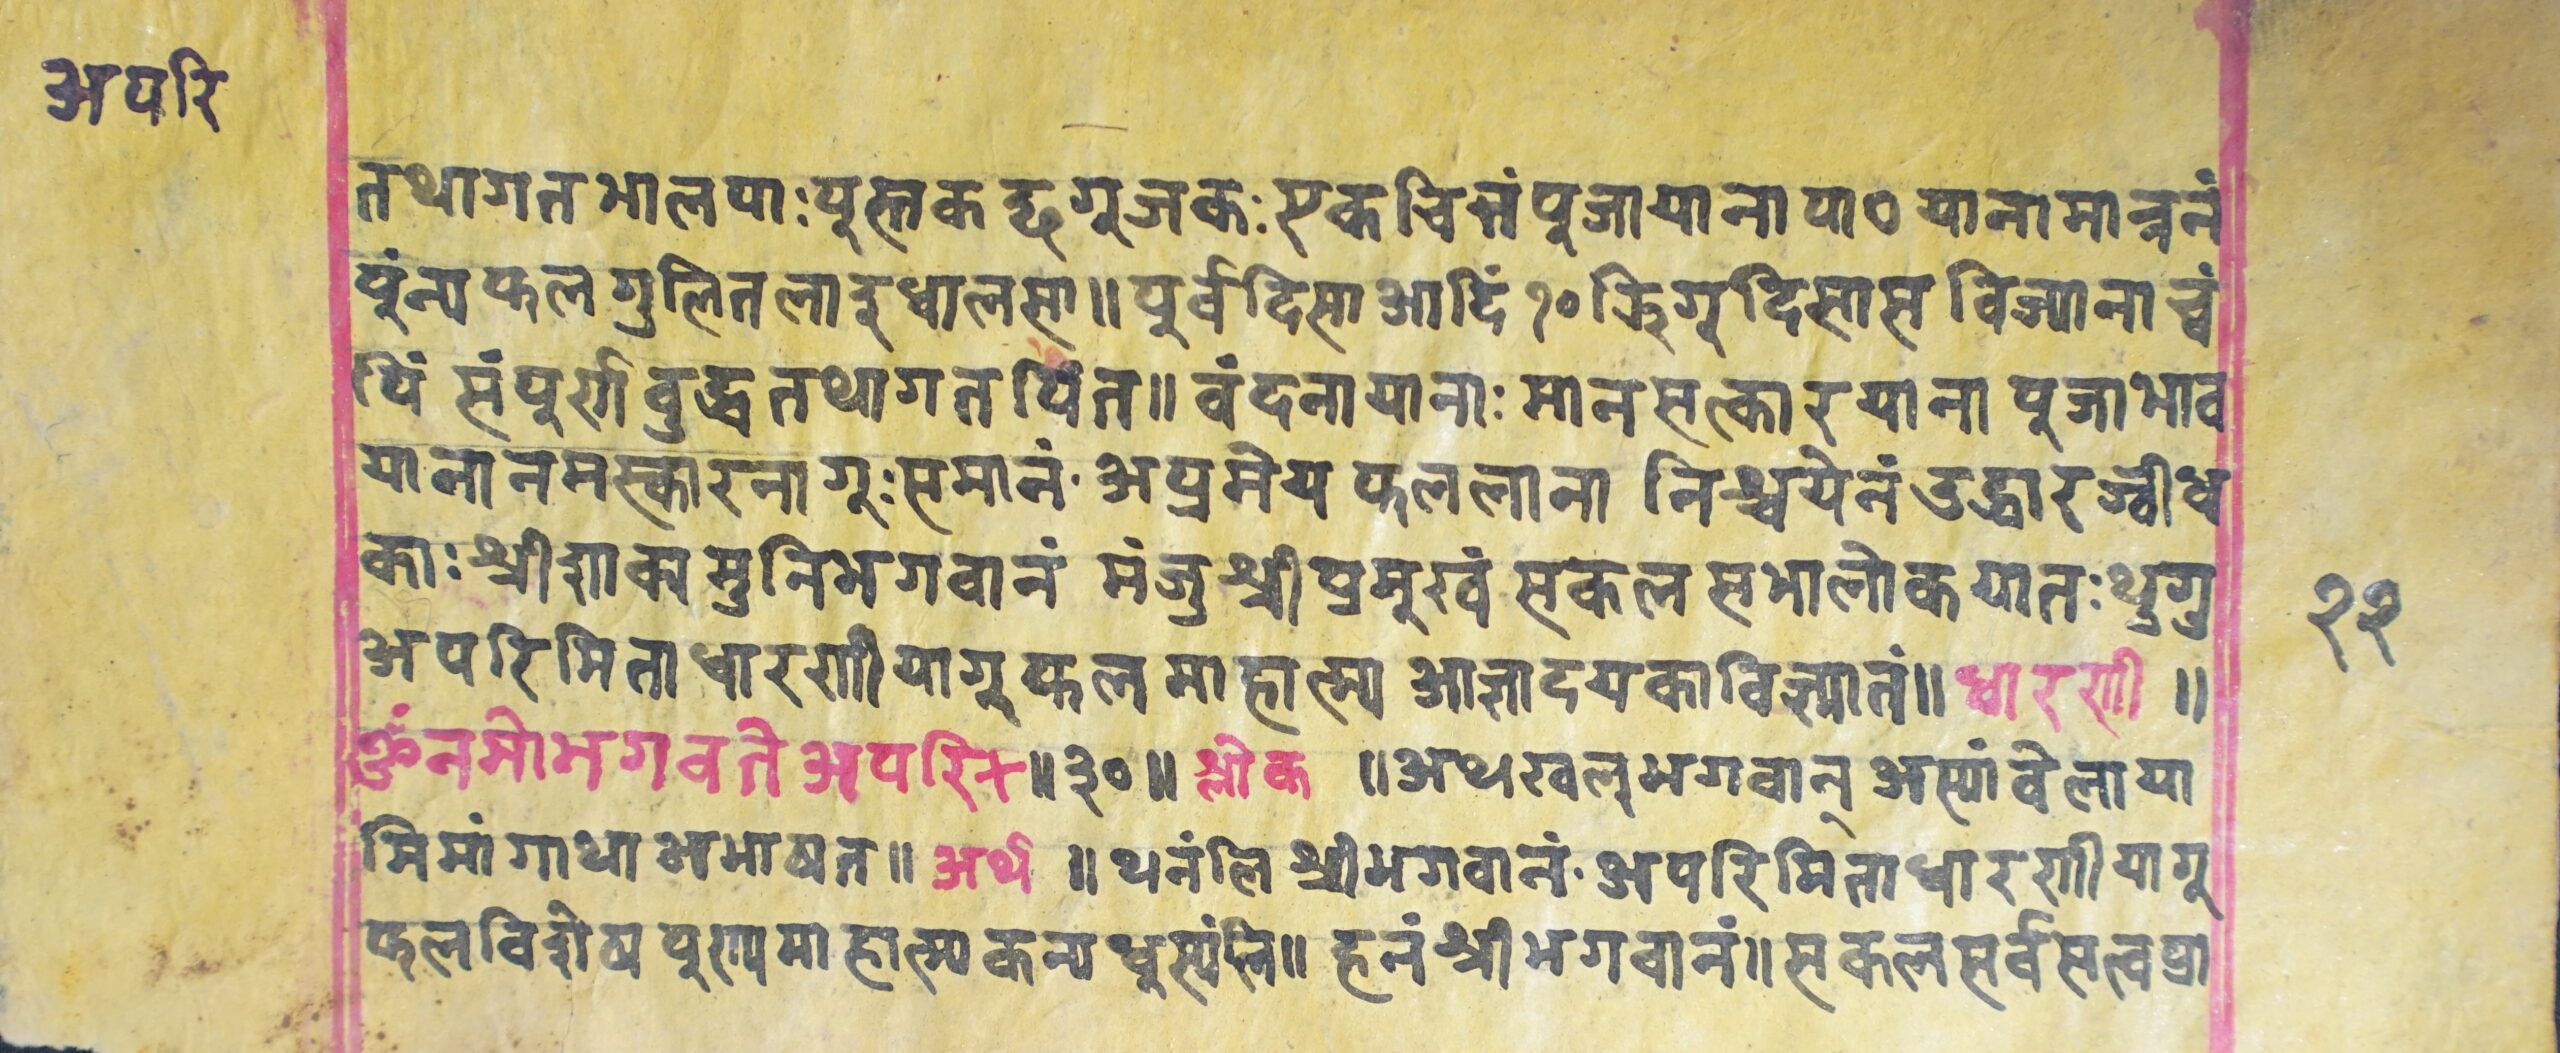 अपरि
तथागत भालपाः पुस्तक छगूजकः एकचित्तं पुजायाना पाठ यानामात्रनं
पुंन्य फल गुलित लाइ धालसा॥ पुर्वदिसा आदिं १० झिगू दिसास विज्यानाच्वं
पिं संपुर्ण बुद्ध तथागत पित॥ वंदनायानाः मान सत्कार याना पुजाभाव
याना नमस्कारनागूः समानं· अप्रमेय फललाना निश्चयेनं उद्धार ज्वीधु
काः श्रीशाक्यमुनिभगवानं मंजुश्रीप्रमुखं सकल सभालोक यातः थुगु
अपरिमिता धारणीयागू फल माहात्म्य आज्ञादयका विज्यातं॥ धारणी ॥
ॐ नमोभगवते अपरि+॥३०॥ श्लोक ॥ अथ खलु भगवान् अस्यां वेलाया
मिमां गाथा अभाषत॥ अर्थ ॥ थनंलि श्रीभगवानं· अपरिमिता धारणीयागू
फलविशेष पुण्य माहात्म्य कन्य धुस्यंलि॥ हनं श्रीभगवानं॥ सकल सर्वसत्वप्रा
२२